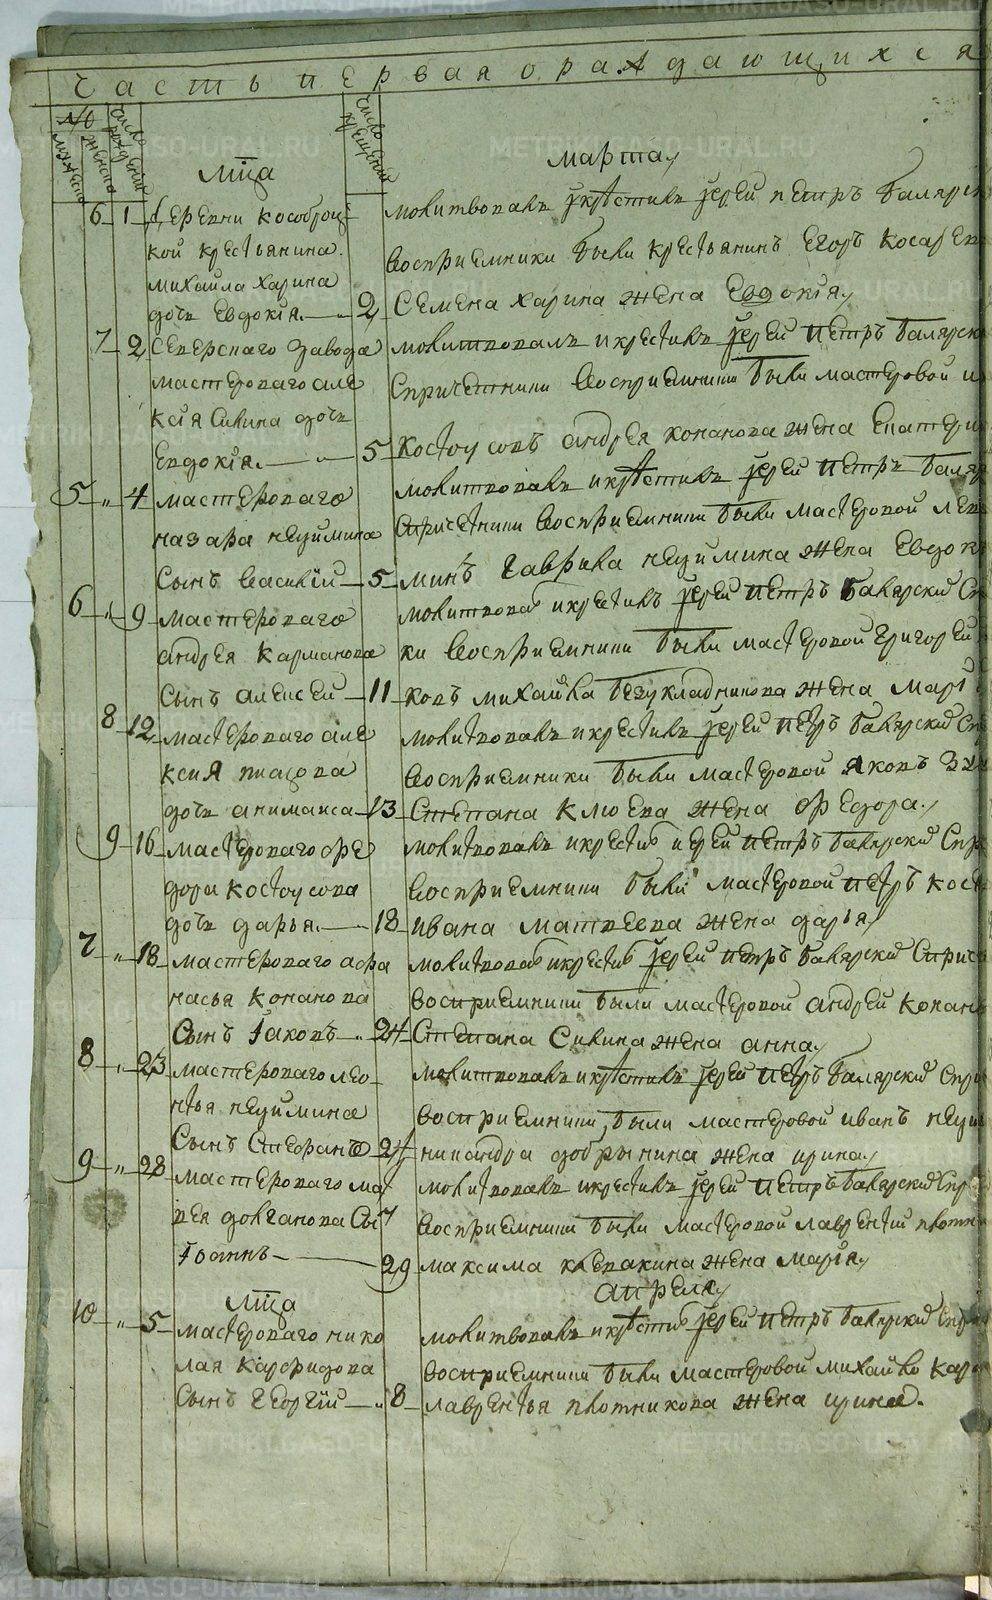 Часть первая о раждающихся
№
мужеска
женска
число рождения
число крещения
мца
марта
6 1 деревни кособроц
кой крестьянина
михаила харина
дочь Евдокiя 2
молитвовалъ и крестилъ Iерей петръ
восприемники были крестьянинъ Егоръ
Семена харина жена Евдокiя
7 2 Северскаго завода
мастероваго але
ксiя Силина дочь
Евдокiя 5
молитвовалъ и крестилъ Iерей петръ
Спричетники восприемники были мастеровой
Костоусовъ андрея конанова жена
5 4 мастероваго
назара неуймина
Сынъ василiй 5
молитвовалъ и крестилъ Iерей петръ
Спричетники восприемники были мастеровой
минъ гаврила неуймина жена
6 9 мастероваго
андрея карманова
Сынъ алексей 11
молитвовалъ и крестилъ Iерей петръ
ки восприемники были мастеровой григорей
ковъ михайла безукладникова жена
8 12 мастероваго але
ксия
дочь 13
молитвовалъ и крестилъ Iерей петръ
восприемники были мастеровой яковъ
Степана Клюева жена федора
9 16 мастероваго фе
дора костоусова
дочь дарья 18
молитвовалъ и крестилъ иерей петръ
восприемники были мастеровой петръ
ивана матвеева жена дарья
7 18 мастероваго афа
насья конанова
Сынъ Iаковъ 24
молитвовалъ и крестилъ Iерей петръ
восприемники были мастеровой андрей
Степана Силина жена анна
8 23 мастероваго лео
нтья неуймина
Сынъ Стефанъ 24
молитвовалъ и крестилъ Iерей петръ
восприемники были мастеровой иванъ
никандра добрынина жена ирина
9 28 мастероваго мат
вея долганова Сы
Iоаннъ 29
молитвовалъ и крестилъ Iерей петръ
восприемники были мастеровой лаврентий
максима клевакина жена марiя
мца
апреля
10 5 мастероваго нико
лая карфидова
Сынъ георгiй 8
молитвовалъ и крестилъ Iерей петръ
восприемники были мастеровой михайло
лаврентья плотникова жена ирина